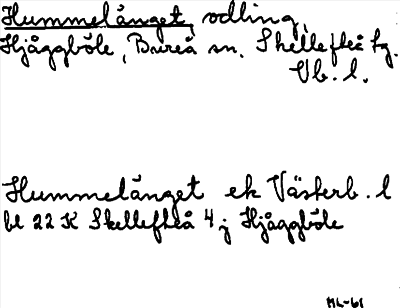 Hummelånget, odling,
Hjåggböle, Bureå sn. Skellefteå tg.
Vb. l.
Hummelånget ek Västerb. l
bl 22 K Skellefteå 4 j Hjåggböle
ML-61